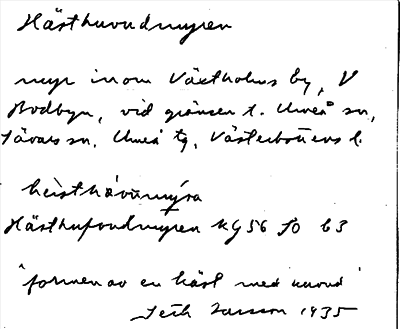 Hästhuvudmyren
myr inom Växtholms by, V
Brodbyn, vid gränsen t. Umeå sn,
Sävars sn, Umeå tg, Västerbottens l.
hèisthǻvumýra
Hästhufvudmyren KG 56 fo 63
"formen av en häst med huvud"
Larsson 1935